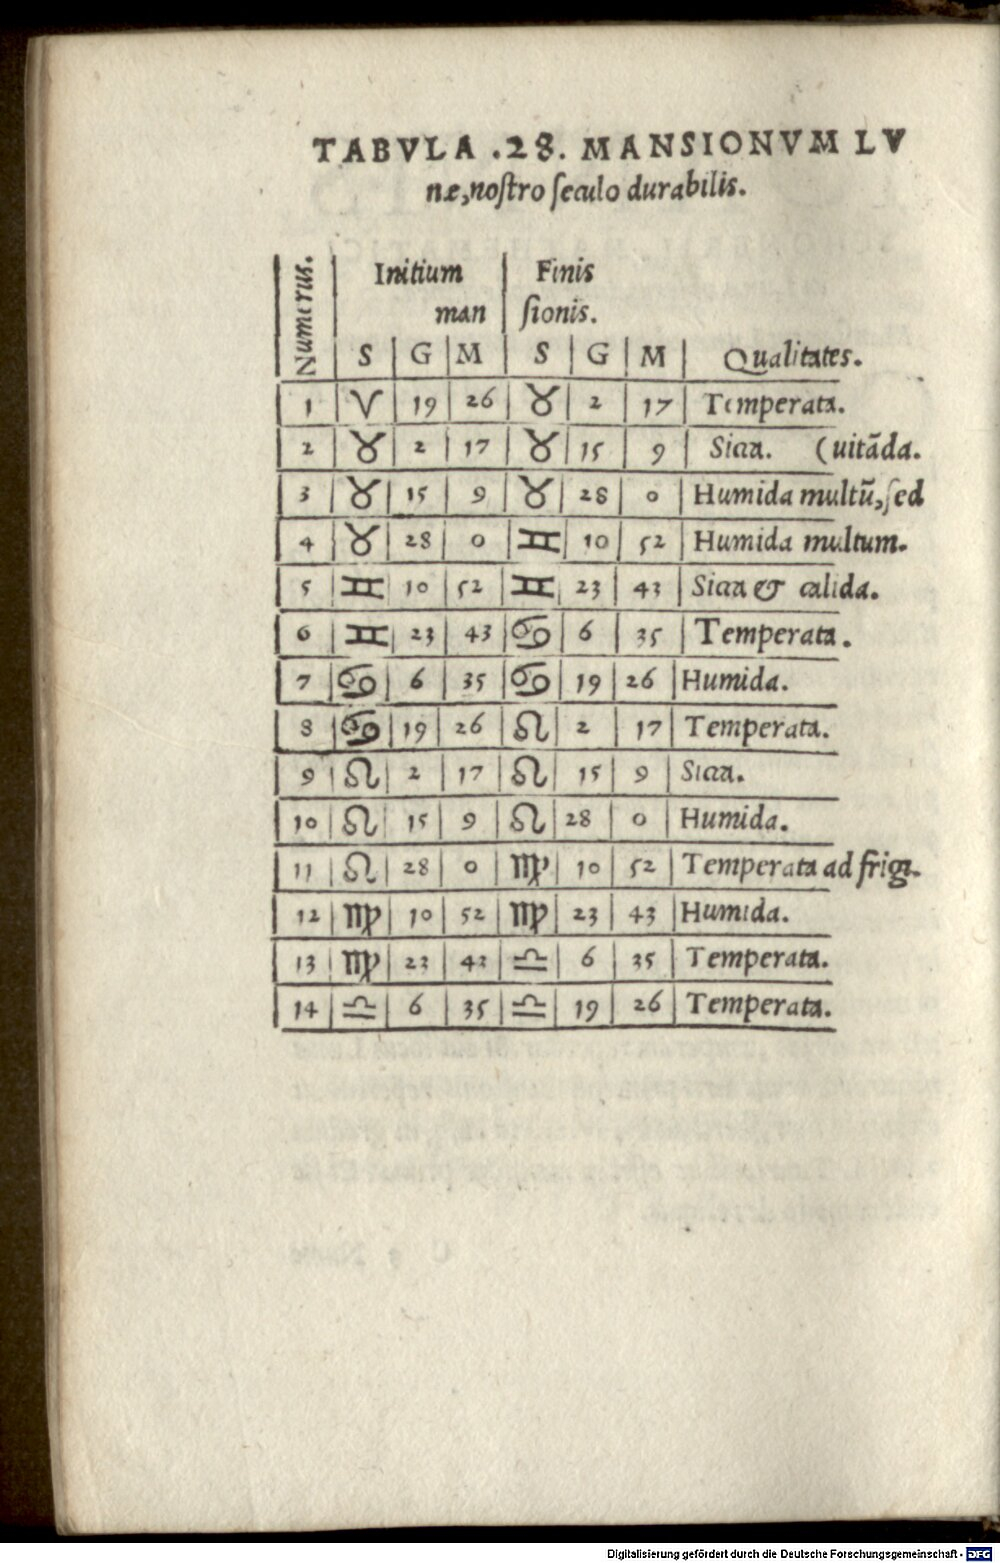 TABVLA .28. MANSIONVM LV
næ,noſtro ſeculo durabilis.
Numerus. Initium Finis
man ſionis.
S G M S G M Qualitates.
1 ♈ 19 26 ♉ 2 17 Temperata.
2 ♉ 2 17 ♉ 15 9 Sicca. (uitãda.
3 ♉ 15 9 ♉ 28 0 Humida multũ,ſed
4 ♉ 28 0 ♊ 10 52 Humida multum.
5 ♊ 10 52 ♊ 23 43 Sicca & calida.
6 ♊ 23 43 ♋ 6 35 Temperata.
7 ♋ 6 35 ♋ 19 26 Humida.
8 ♋ 19 26 ♌ 2 17 Temperata.
9 ♌ 2 17 ♌ 15 9 Sicca.
10 ♌ 15 9 ♌ 28 0 Humida.
11 ♌ 28 0 ♍ 10 52 Temperata ad frigi.
12 ♍ 10 52 ♍ 23 43 Humida.
13 ♍ 23 43 ♎ 6 35 Temperata.
14 ♎ 6 35 ♎ 19 26 Temperata.
Digitalisierung gefördert durch die Deutsche Forschungsgemeinschaft - DFG